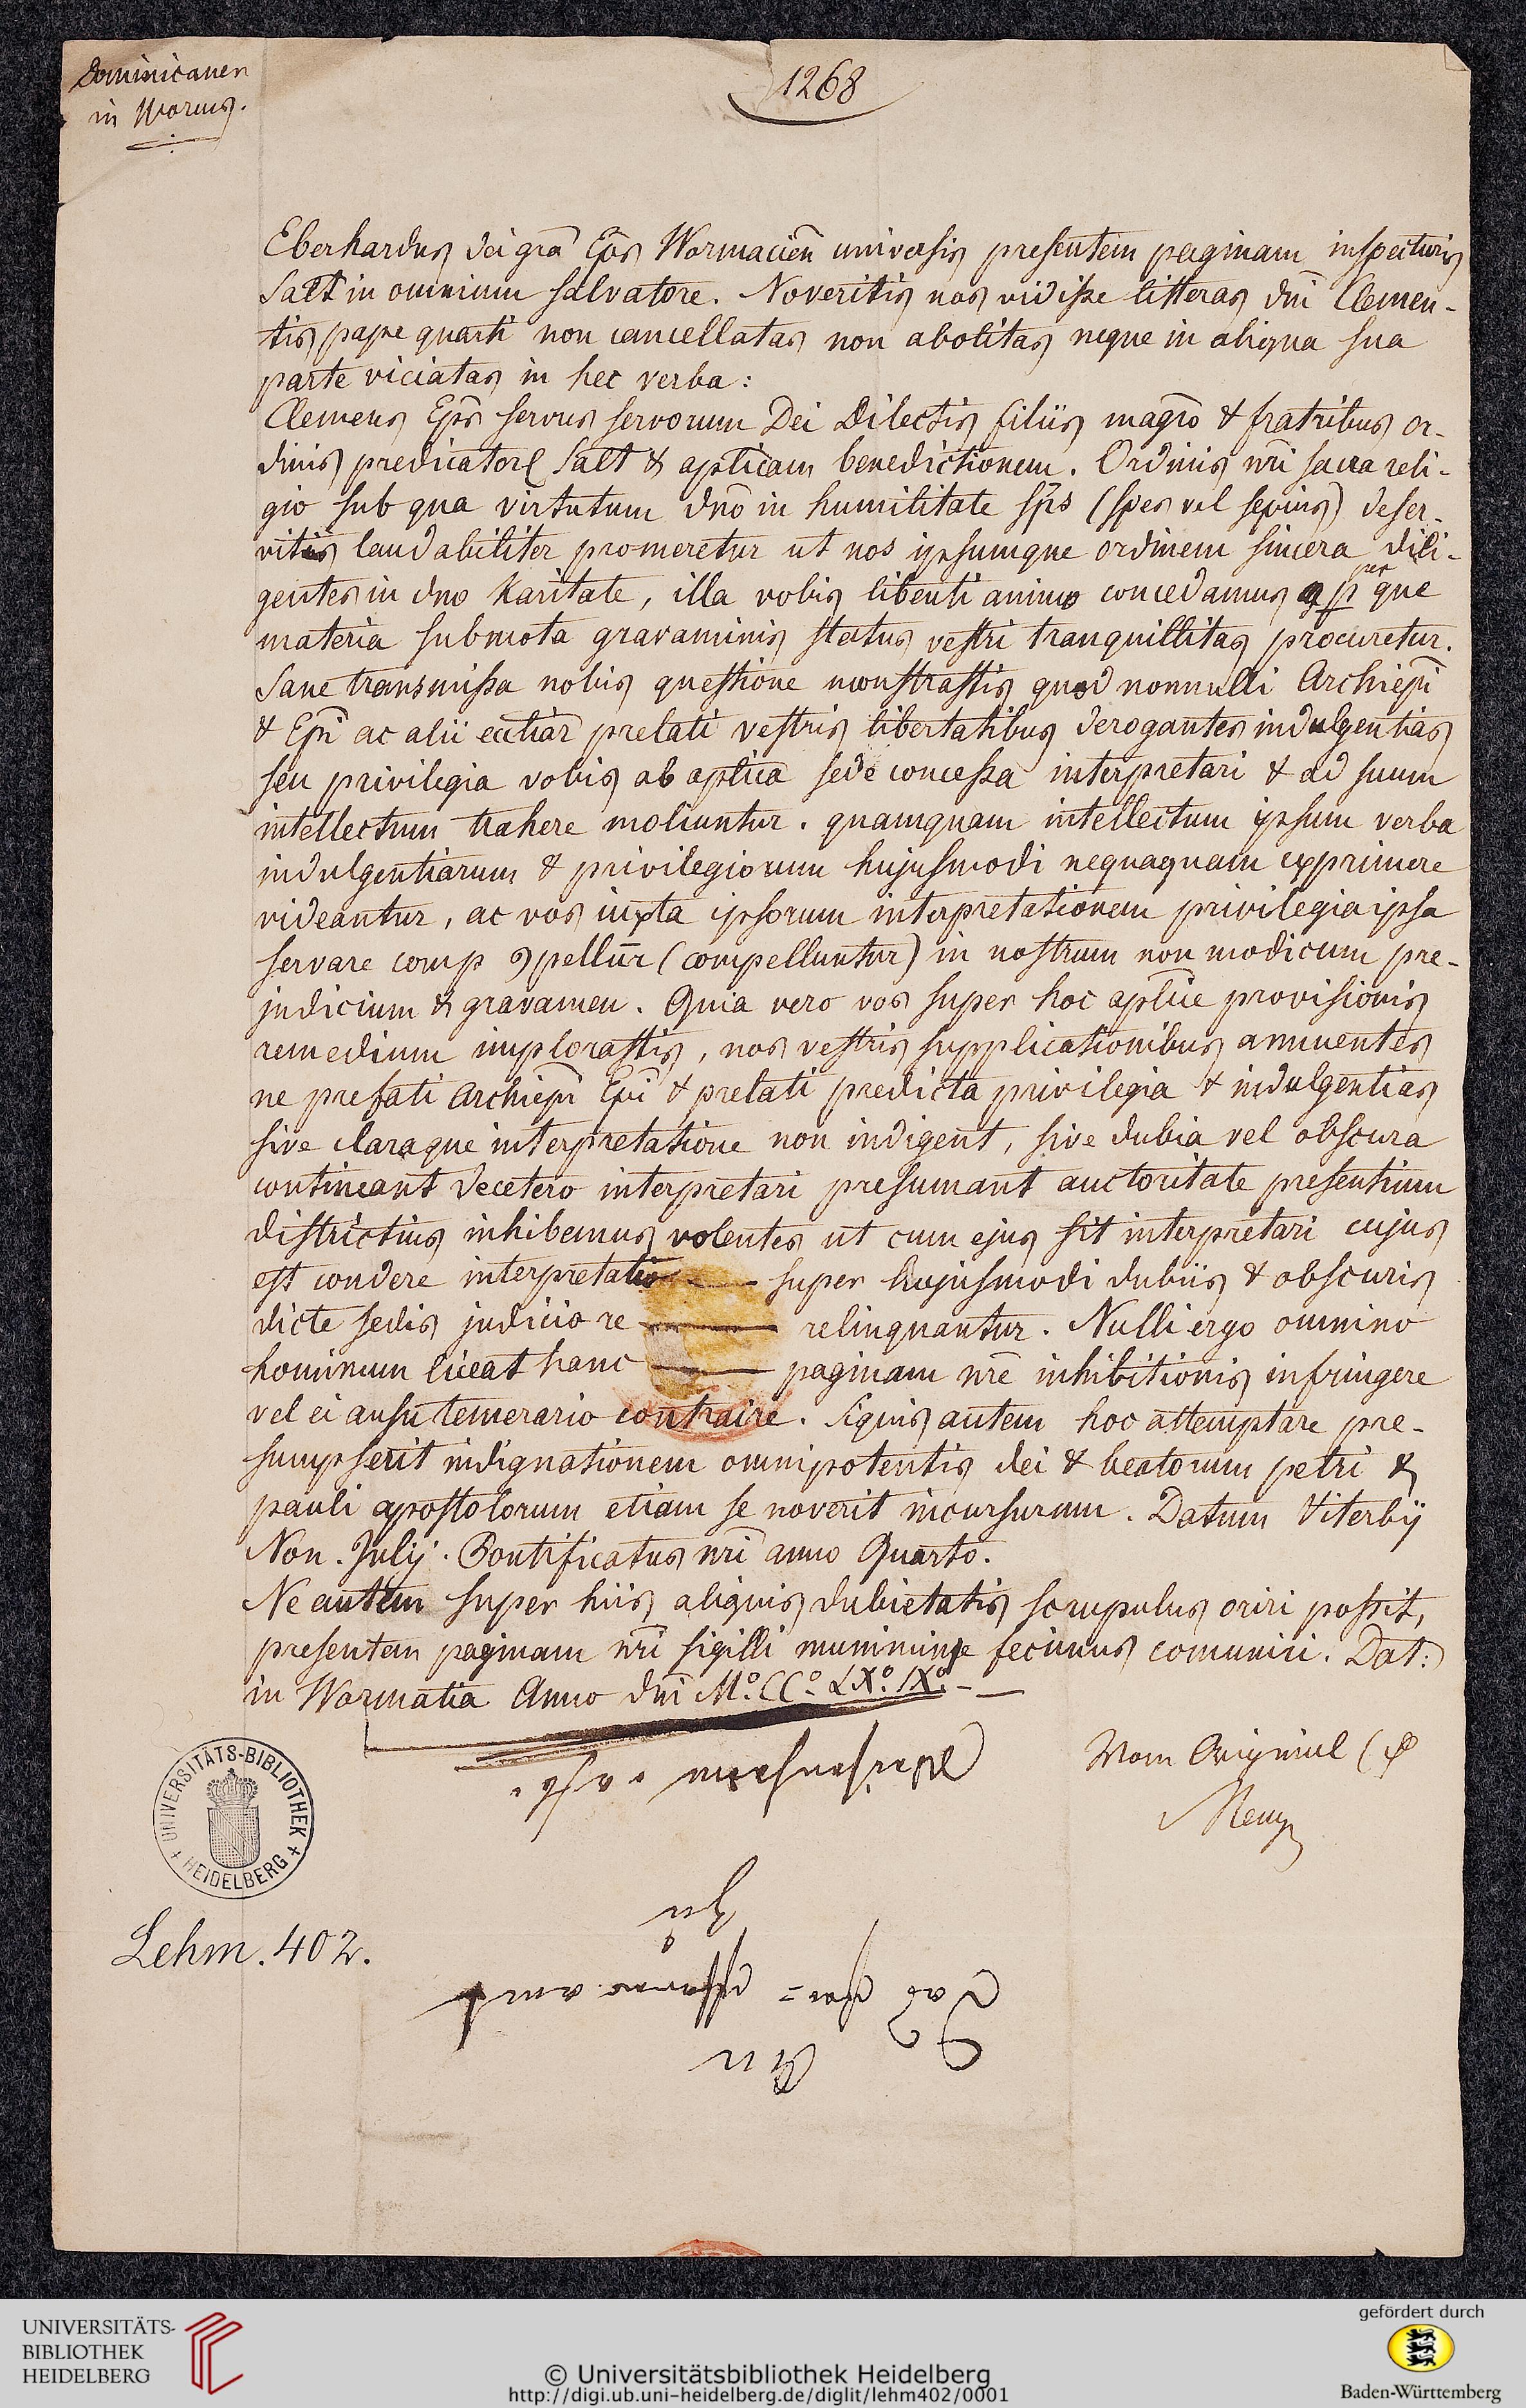 Dominicaner
in Worms.
1268
Eberhardus dei gra Eps Wormacien universis presentem paginam inspecturis
Salt in omnium salvatore. Noveritis nos vidisse litteras dni Clemen-
tis pape quarti non cancellatas non abolitas neque in aliqua sua
parte viciatas in hec verba:
Clemens Eps servus servorum Dei Dilectis filiis magro & fratribus or-
dinis predicator Salt & aplicam benedictionem. Ordinis nri sacra reli-
gio sub qua virtutum dno in humilitate sps (spes vel sepius) deser-
vitis laudabiliter promeretur ut nos ipsumque ordinem sincera dili-
gentes in dno Karitate, illa vobis libenti animo concedamus per que
materia submota gravaminis status vestri tranquillitas procuretur.
Sane transmissa nobis questione monstrastis quod nonnulli Archiepi
& Epi ac alii ecctiar prelati vestris libertatibus derogantes indulgentias
seu privilegia vobis ab aplica sede concessa interpretari & ad suum
intellectum trahere moliuntur. quamquam intellectum ipsum verba
indulgentiarum & privilegiorum hujusmodi nequaquam exprimere
videantur, ac vos iuxta ipsorum interpretationem privilegia ipsa
servare comp ꝯpellunr (compelluntur) in nostrum non modicum pre-
judicium & gravamen. Quia vero vos super hoc aplice provisionis
remedium implorastis, nos vestris supplicationibus annuentes
ne prefati Archiepi Epi & prelati predicta privilegia & indulgentias
sive clara que interpretatione non indigent, sive dubia vel obscura
contineant decetero interpretari presumant auctoritate presentium
districtius inhibemus volentes ut cum ejus sit interpretari cujus
est condere interpretatio — super hujusmodi dubiis & obscuris
dicte sedis judicio re — relinquantur. Nulli ergo omnino
hominum liceat hanc — paginam nre inhibitionis infringere
vel ei ausu temerario contraire. Siquis autem hoc attemptare pre-
sumpserit indignationem omnipotentis dei & beatorum petri &
pauli apostolorum etiam se noverit incursurum. Datum Viterbij
Non. Julij. Pontificatus nri anno Quarto.
Ne autem super hiis aliquis dubietatis scrupulus oriri possit,
presentem paginam nri sigilli munimine fecimus comuniri. Dat:
in Wormatia Anno dni Mo. CCo. LXo. IXo. —
Vom Original
UNIVERSITÄTS-BIBLIOTHEK
HEIDELBERG
zu
Lehm. 402.
An
UNIVERSITÄTS-
BIBLIOTHEK
HEIDELBERG
© Universitätsbibliothek Heidelberg
http://digi.ub.uni-heidelberg.de/diglit/lehm402/0001
gefördert durch
Baden-Württemberg